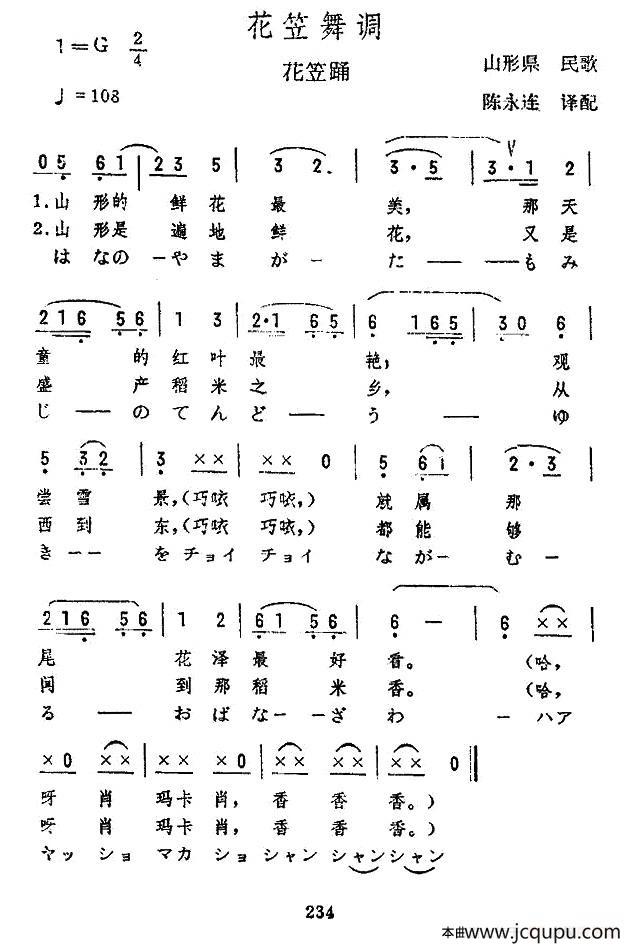 花笠舞调
1=G 2/4
花笠踊
山形県 民歌
♩=108
陈永连 译配
0 5 6 1 | 2 3 5 | 3 2. | 3 · 5 | 3 · 1 2 |
1.山 形的 鲜 花 最 美, 那 天
2.山 形是 遍 地 鲜 花, 又 是
は なの ー や ま が ー た ー ー も み
2 1 6 5 6 | 1 3 | 2 · 1 6 5 | 6 1 6 5 | 3 0 6 |
童 的 红 叶 最 艳, 观
盛 产 稻 米 之 乡, 从
じ ー の て ん ど ー う ー ゆ
5 3 2 | 3 × × | × × 0 | 5 6 i | 2 · 3 |
尝 雪 景,(巧 咴 巧 咴,) 就 属 那
西 到 东,(巧 咴 巧 咴,) 都 能 够
き ー ー を チョイ チョイ な が ー む ー
2 1 6 5 6 | 1 2 | 6 1 5 6 | 6 — | 6 × × |
尾 花 泽 最 好 看。 (哈,
闻 到 那 稻 米 香。 (哈,
る ー お ば な ー ー ざ わ ー ハア
× 0 × × | × × × × | × 0 × × | × × 0 ‖
呀 肖 玛卡 肖, 香 香 香。)
呀 肖 玛卡 肖, 香 香 香。)
ヤッ ショ マカ ショ シャン シャンシャン
234
本曲由www.jcqupu.com